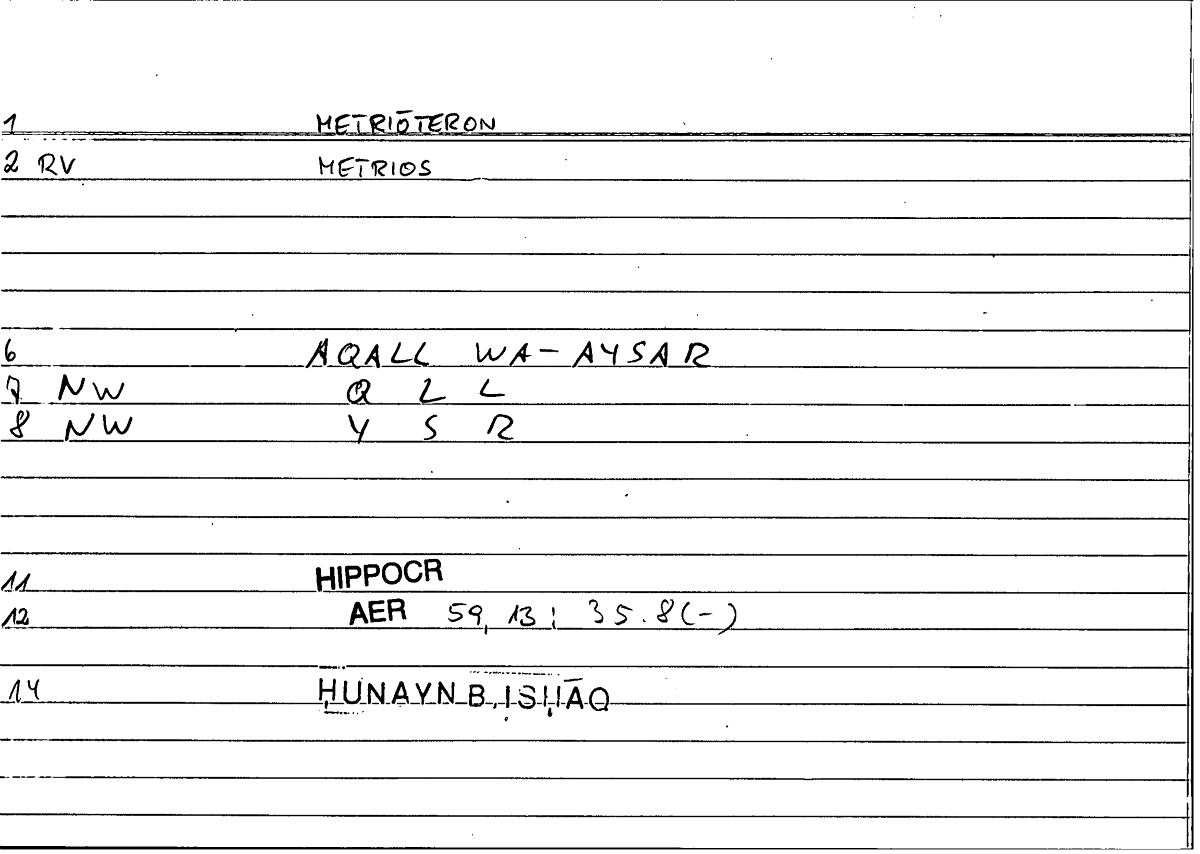 1 METRIŌTERON
2 RV METRIOS
6 AQALL WA-AYSAR
7 NW Q L L
8 NW Y S R
11 HIPPOCR
12 AER 59, 13; 35.8(-)
14 ḤUNAYN B. ISḤĀQ